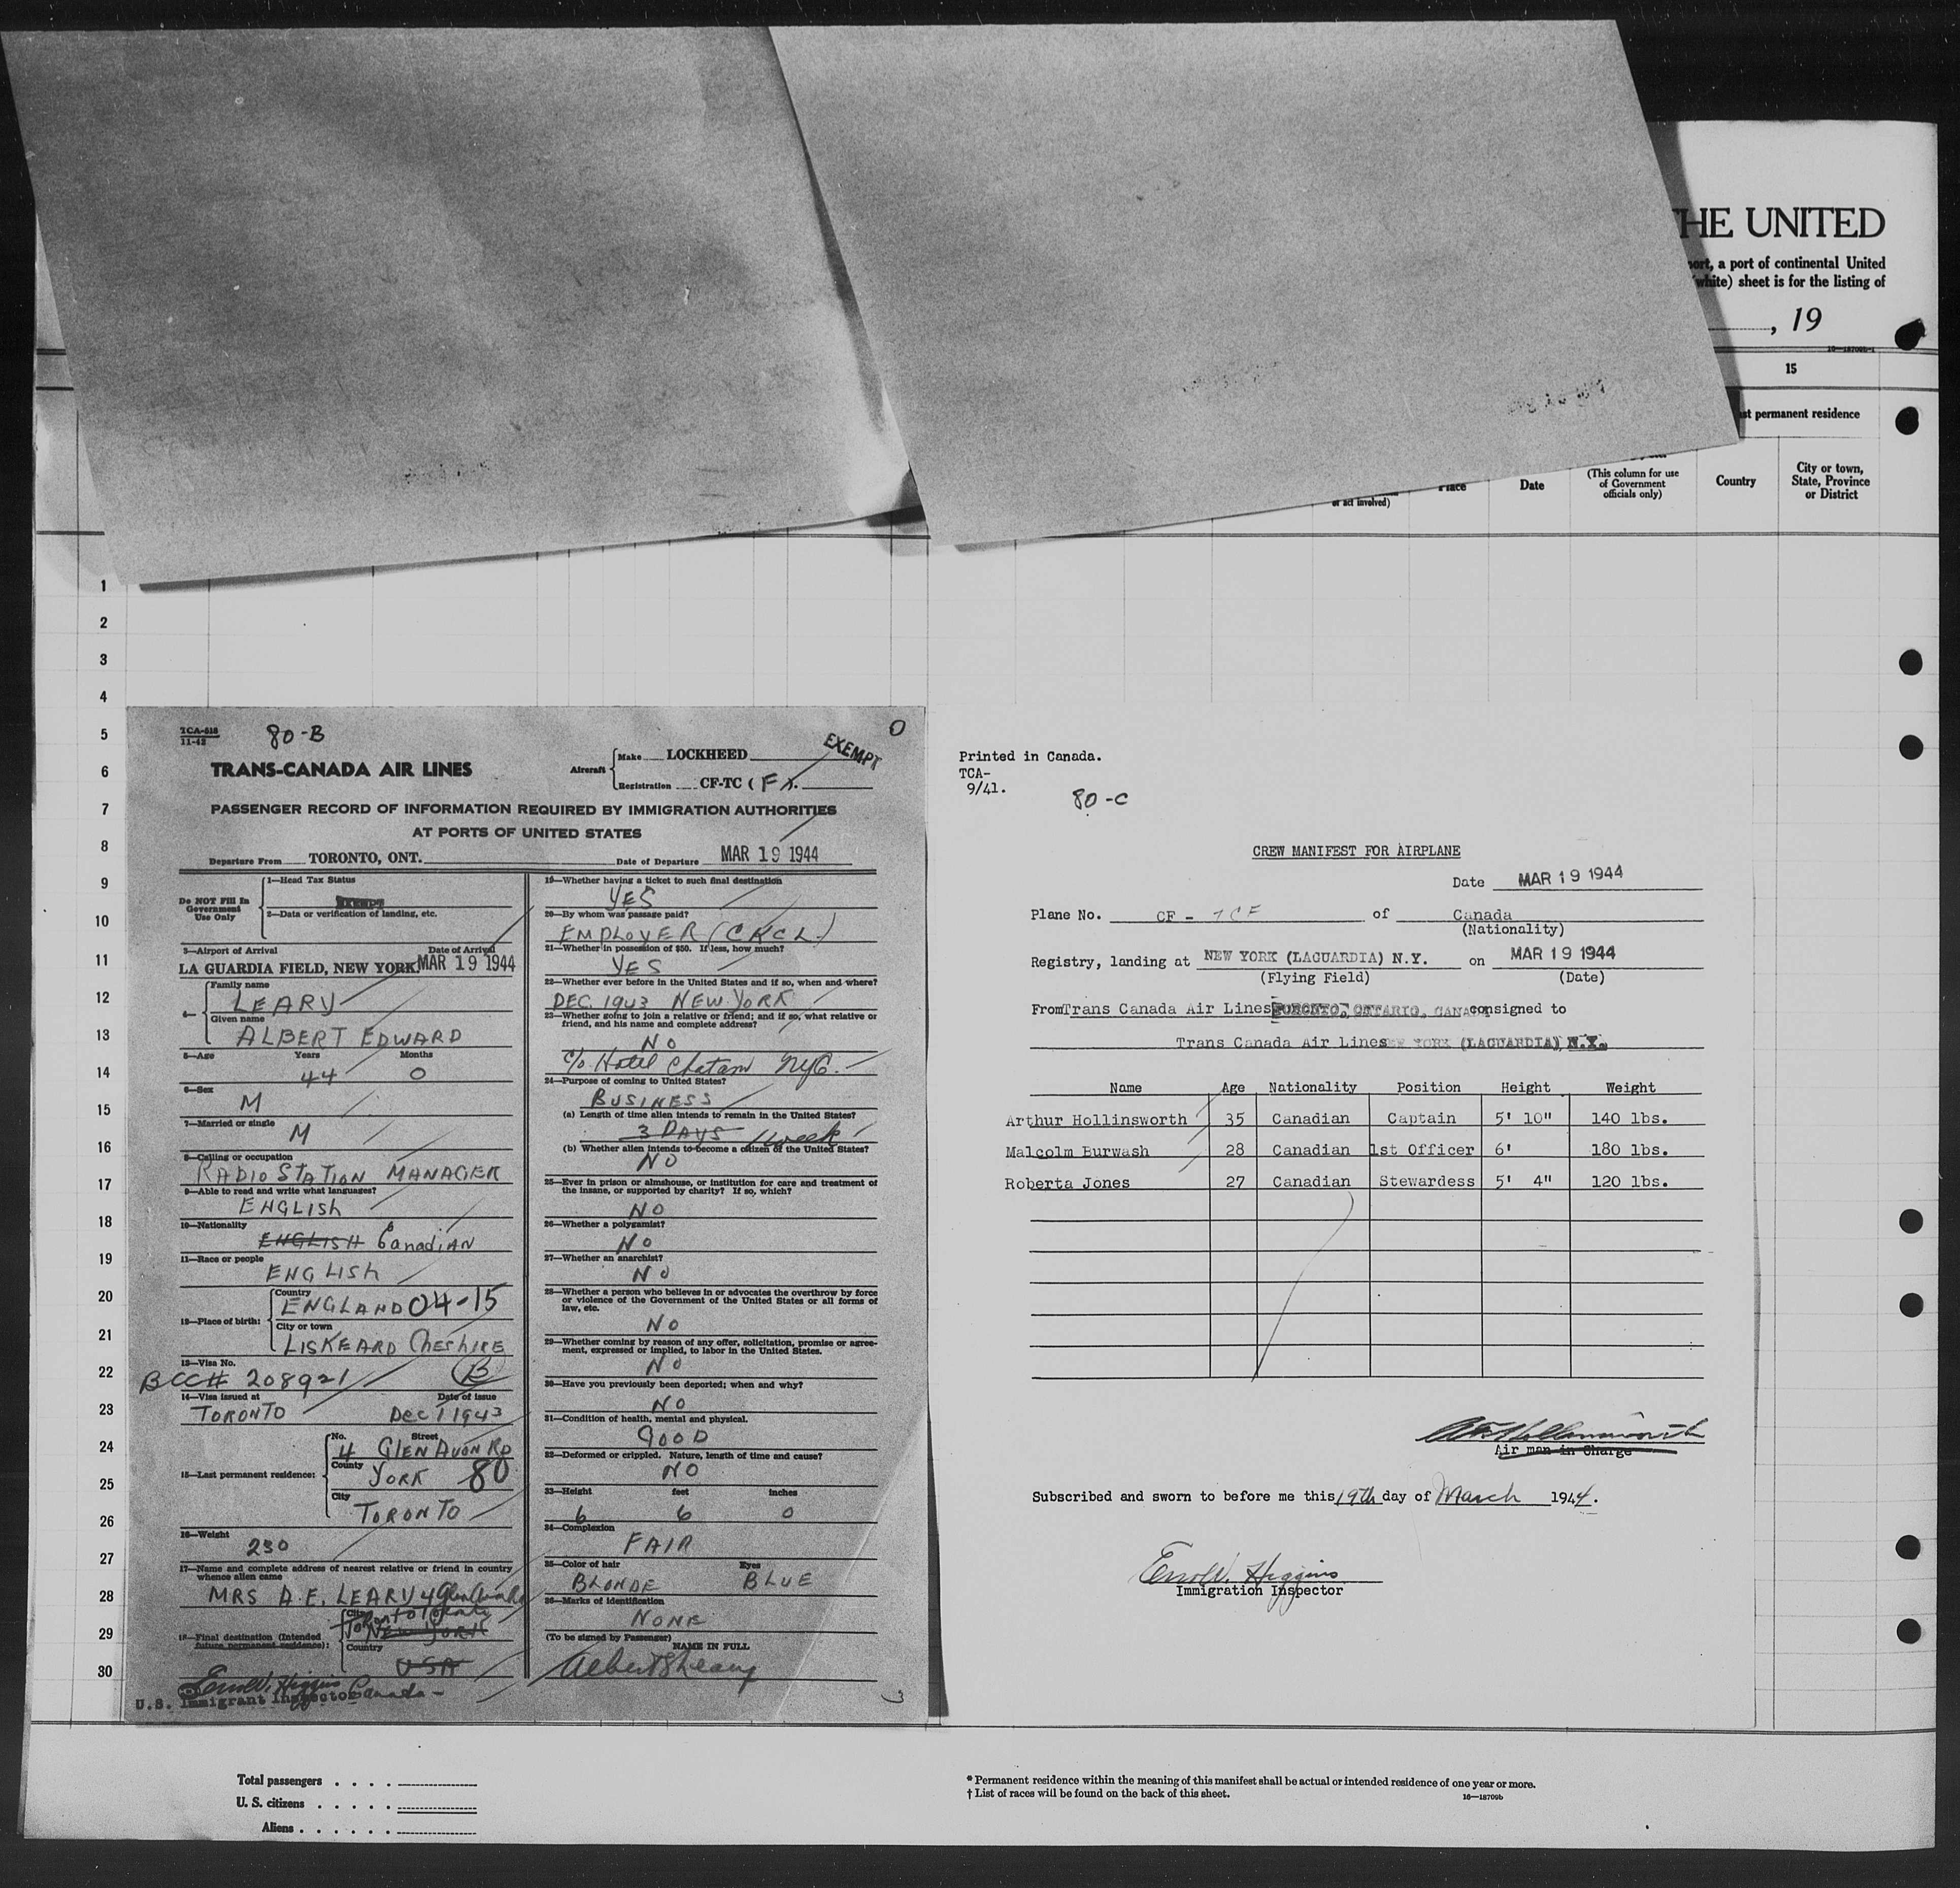 THE UNITED
port, a port of continental United
(white) sheet is for the listing of
, 19
16—18709b-1
15
st permanent residence
of act involved)
Place
Date
(This column for use
of Government
officials only)
Country
City or town,
State, Province
or District
1
2
3
4
5
6
7
8
9
10
11
12
13
14
15
16
17
18
19
20
21
22
23
24
25
26
27
28
29
30
TCA-518
11-42
80-B
0
EXEMPT
TRANS-CANADA AIR LINES
Aircraft
Make LOCKHEED
Registration CF-TC (F).
PASSENGER RECORD OF INFORMATION REQUIRED BY IMMIGRATION AUTHORITIES
AT PORTS OF UNITED STATES
Departure From TORONTO, ONT. Date of Departure MAR 19 1944
Do NOT Fill In
Government
Use Only
1—Head Tax Status
EXEMPT
2—Data or verification of landing, etc.
3—Airport of Arrival Date of Arrival
LA GUARDIA FIELD, NEW YORK. MAR 19 1944
4— Family name
LEARY
Given name
ALBERT EDWARD
5—Age Years Months
44 0
6—Sex
M
7—Married or single
M
8—Calling or occupation
RADIO STATION MANAGER
9—Able to read and write what languages?
ENGLISH
10—Nationality
ENGLISH Canadian
11—Race or people
ENGLISH
12—Place of birth:
Country
ENGLAND 04-15
City or town
LISKEARD CHESHIRE
13—Visa No.
BCC# 208921 B
14—Visa issued at Date of issue
TORONTO Dec 1 1943
15—Last permanent residence:
No. Street
4 GLEN AVON RD
County
YORK 80
City
TORONTO
16—Weight
230
17—Name and complete address of nearest relative or friend in country
whence alien came
MRS A.E. LEARY 4 Glen Avon Rd
18—Final destination (Intended
future permanent residence):
City
Toronto
NEW YORK
Country
USA
Canada
U.S. Immigrant Inspector
19—Whether having a ticket to such final destination
YES
20—By whom was passage paid?
EMPLOYER (CKCL)
21—Whether in possession of $50. If less, how much?
YES
22—Whether ever before in the United States and if so, when and where?
DEC. 1943 NEW YORK
23—Whether going to join a relative or friend; and if so, what relative or
friend, and his name and complete address?
NO
c/o Hotel Chatam NYC.
24—Purpose of coming to United States?
BUSINESS
(a) Length of time alien intends to remain in the United States?
3 DAYS 1 week
(b) Whether alien intends to become a citizen of the United States?
NO
25—Ever in prison or almshouse, or institution for care and treatment of
the insane, or supported by charity? If so, which?
NO
26—Whether a polygamist?
NO
27—Whether an anarchist?
NO
28—Whether a person who believes in or advocates the overthrow by force
or violence of the Government of the United States or all forms of
law, etc.
NO
29—Whether coming by reason of any offer, solicitation, promise or agree-
ment, expressed or implied, to labor in the United States.
NO
30—Have you previously been deported; when and why?
NO
31—Condition of health, mental and physical.
GOOD
32—Deformed or crippled. Nature, length of time and cause?
NO
33—Height feet inches
6 6 0
34—Complexion
FAIR
35—Color of hair Eyes
BLONDE BLUE
36—Marks of identification
NONE
(To be signed by Passenger)
NAME IN FULL
Albert E Leary
3
Printed in Canada.
TCA-
9/41.
80-C
CREW MANIFEST FOR AIRPLANE
Date MAR 19 1944
Plane No. CF - TCF of Canada
(Nationality)
Registry, landing at NEW YORK (LAGUARDIA) N.Y. on MAR 19 1944
(Flying Field) (Date)
From Trans Canada Air Lines TORONTO, ONTARIO, CANADA consigned to
Trans Canada Air Lines NEW YORK (LAGUARDIA) N.Y.
Name Age Nationality Position Height Weight
Arthur Hollinsworth 35 Canadian Captain 5' 10" 140 lbs.
Malcolm Burwash 28 Canadian 1st Officer 6' 180 lbs.
Roberta Jones 27 Canadian Stewardess 5' 4" 120 lbs.
Air man in Charge
Subscribed and sworn to before me this 19th day of March 1944.
Errol V. Higgins
Immigration Inspector
Total passengers
U. S. citizens
Aliens
* Permanent residence within the meaning of this manifest shall be actual or intended residence of one year or more.
† List of races will be found on the back of this sheet.
16—18709b